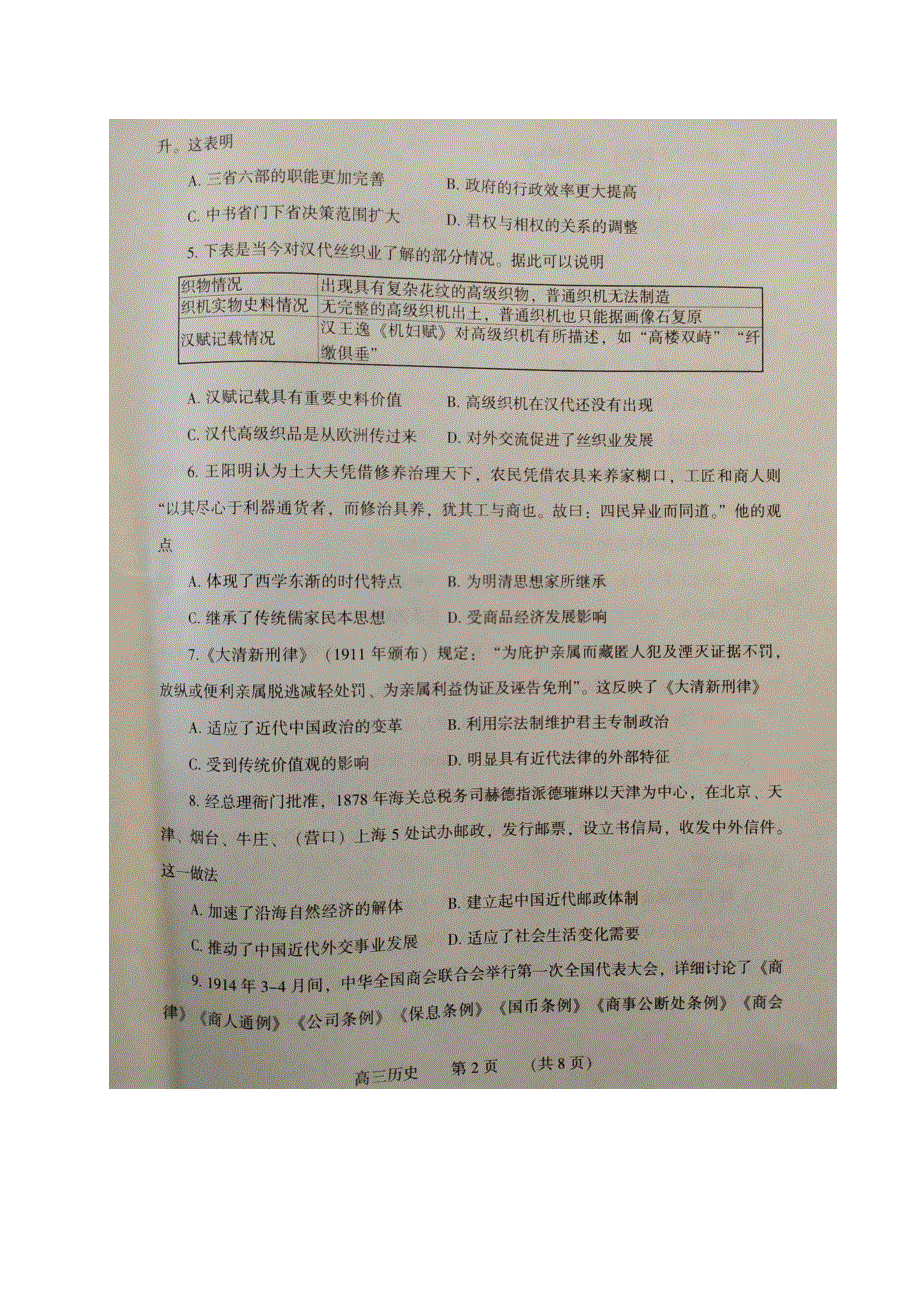 升。这表明
A. 三省六部的职能更加完善 B. 政府的行政效率更大提高
C. 中书省门下省决策范围扩大 D. 君权与相权的关系的调整
5. 下表是当今对汉代丝织业了解的部分情况。据此可以说明
织物情况 出现具有复杂花纹的高级织物，普通织机无法制造
织机实物史料情况 无完整的高级织机出土，普通织机也只能据画像石复原
汉赋记载情况 汉王逸《机妇赋》对高级织机有所描述，如“高楼双峙”“纤
缴俱垂”
A. 汉赋记载具有重要史料价值 B. 高级织机在汉代还没有出现
C. 汉代高级织品是从欧洲传过来 D. 对外交流促进了丝织业发展
6. 王阳明认为士大夫凭借修养治理天下，农民凭借农具来养家糊口，工匠和商人则
“以其尽心于利器通货者，而修治具养，犹其工与商也。故曰：四民异业而同道。”他的观
点
A. 体现了西学东渐的时代特点 B. 为明清思想家所继承
C. 继承了传统儒家民本思想 D. 受商品经济发展影响
7.《大清新刑律》（1911 年颁布）规定：“为庇护亲属而藏匿人犯及湮灭证据不罚，
放纵或便利亲属脱逃减轻处罚、为亲属利益伪证及诬告免刑”。这反映了《大清新刑律》
A. 适应了近代中国政治的变革 B. 利用宗法制维护君主专制政治
C. 受到传统价值观的影响 D. 明显具有近代法律的外部特征
8. 经总理衙门批准，1878 年海关总税务司赫德指派德璀琳以天津为中心，在北京、天
津、烟台、牛庄、（营口）上海 5 处试办邮政，发行邮票，设立书信局，收发中外信件。
这一做法
A. 加速了沿海自然经济的解体 B. 建立起中国近代邮政体制
C. 推动了中国近代外交事业发展 D. 适应了社会生活变化需要
9. 1914 年 3–4 月间，中华全国商会联合会举行第一次全国代表大会，详细讨论了《商
律》《商人通例》《公司条例》《保息条例》《国币条例》《商事公断处条例》《商会
高三历史 第 2 页 (共 8 页)